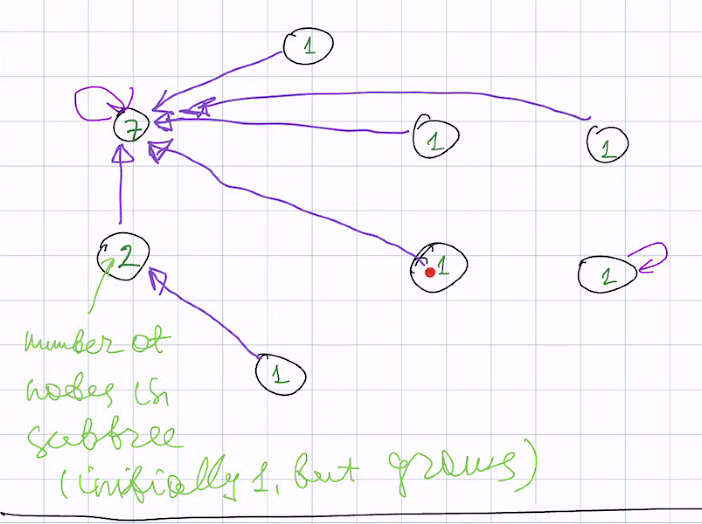 1
7
1
1
2
1
1
1
number of
nodes in
subtree
(initially 1, but grows)